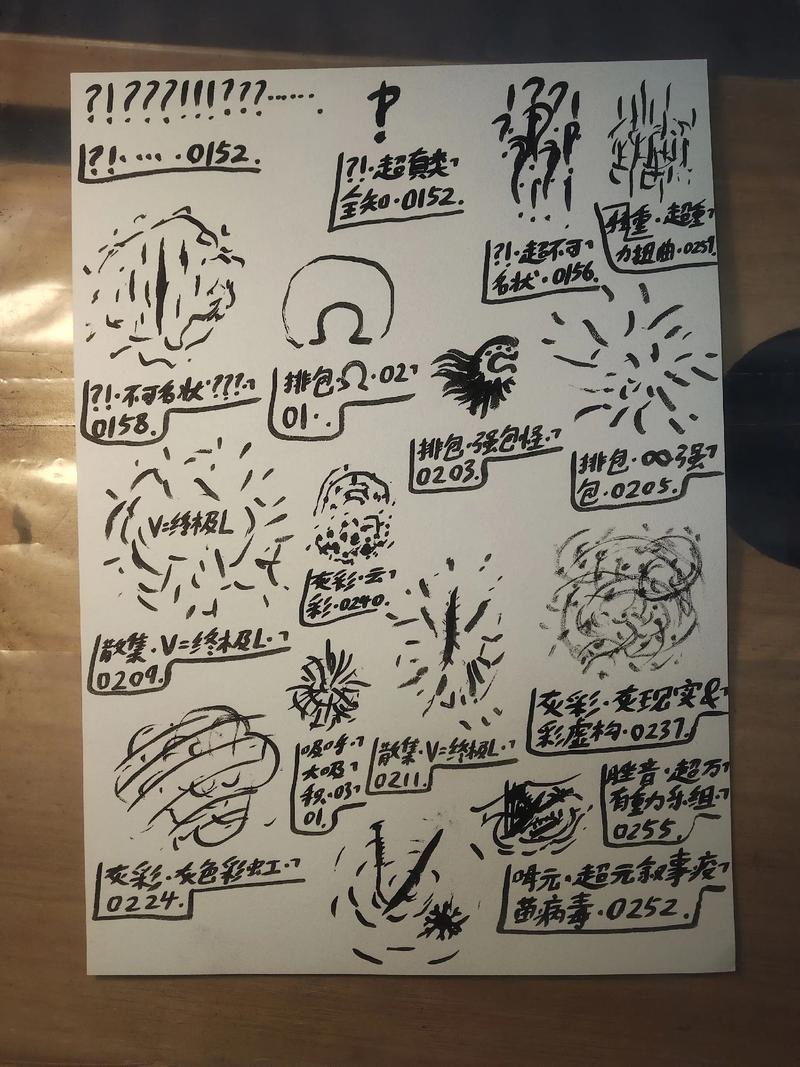 ?!???!!!???……
?!·…·0152.
?!
?!·超真实
全知·0152.
?!·超不可
名状·0156.
重·超重
力扭曲·0257.
?!·不可名状·???
0158.
排包·Ω·02
01·.
排包·强包怪·
0203.
排包·∞强
包·0205.
V=终极L
散集·V=终极L·
0209.
灰彩·云
彩·0240.
灰彩·灰现实&
彩虚构·0237.
吸呼·
太吸
积·03
01.
散集·V=终极L·
0211.
灰彩·灰色彩虹·
0224.
音·超万
有重力乐组·
0255.
元·超元叙事疫
苗病毒·0252.